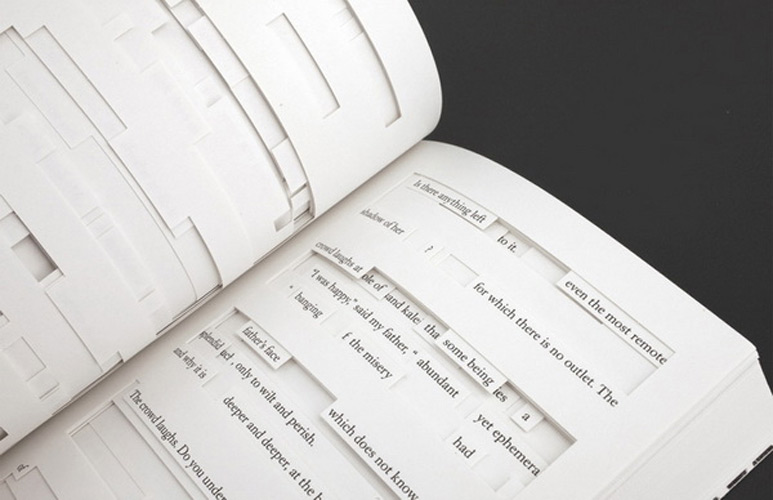 Is there anything left
shadow of her to it.
? even the most remote
crowd laughs at for which there is no outlet. The
"I was happy," said my father, " abundant
hanging some being
the misery yet ephemera
father's face a
splendid had
and why it is , only to wilt and perish.
deeper and deeper, at the which does not know
The crowd laughs. Do you under